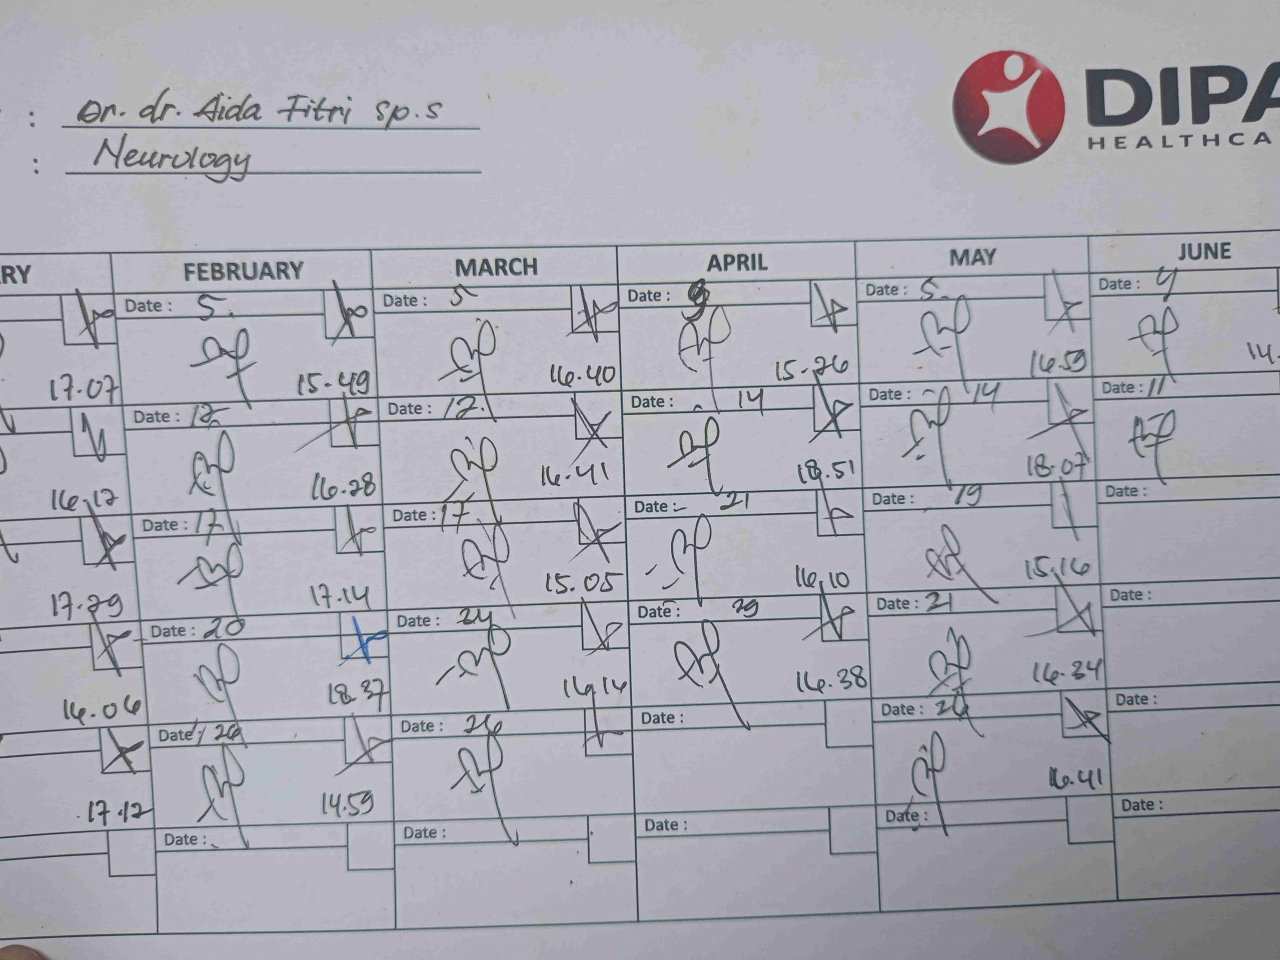 : Dr. dr. Aida Fitri Sp.S
: Neurology
DIPA
HEALTHCA
RY FEBRUARY MARCH APRIL MAY JUNE
Date : 5. Date : 5 Date : Date : 5. Date : 4
17.07 15.49 16.40 15.26 16.59 14.
Date : 12 Date : 12. Date : 14 Date : 14 Date : 11
16.12 16.28 16.41 18.51 18.07
Date : 17 Date : 17 Date : 21 Date : 19 Date :
17.29 17.14 15.05 16.10 15.16
Date : 20 Date : 24 Date : 29 Date : 21 Date :
16.06 18.37 16.16 16.38 16.34
Date : 26 Date : 26 Date : Date : 26 Date :
17.12 14.59 16.41
Date : Date : Date : Date : Date :